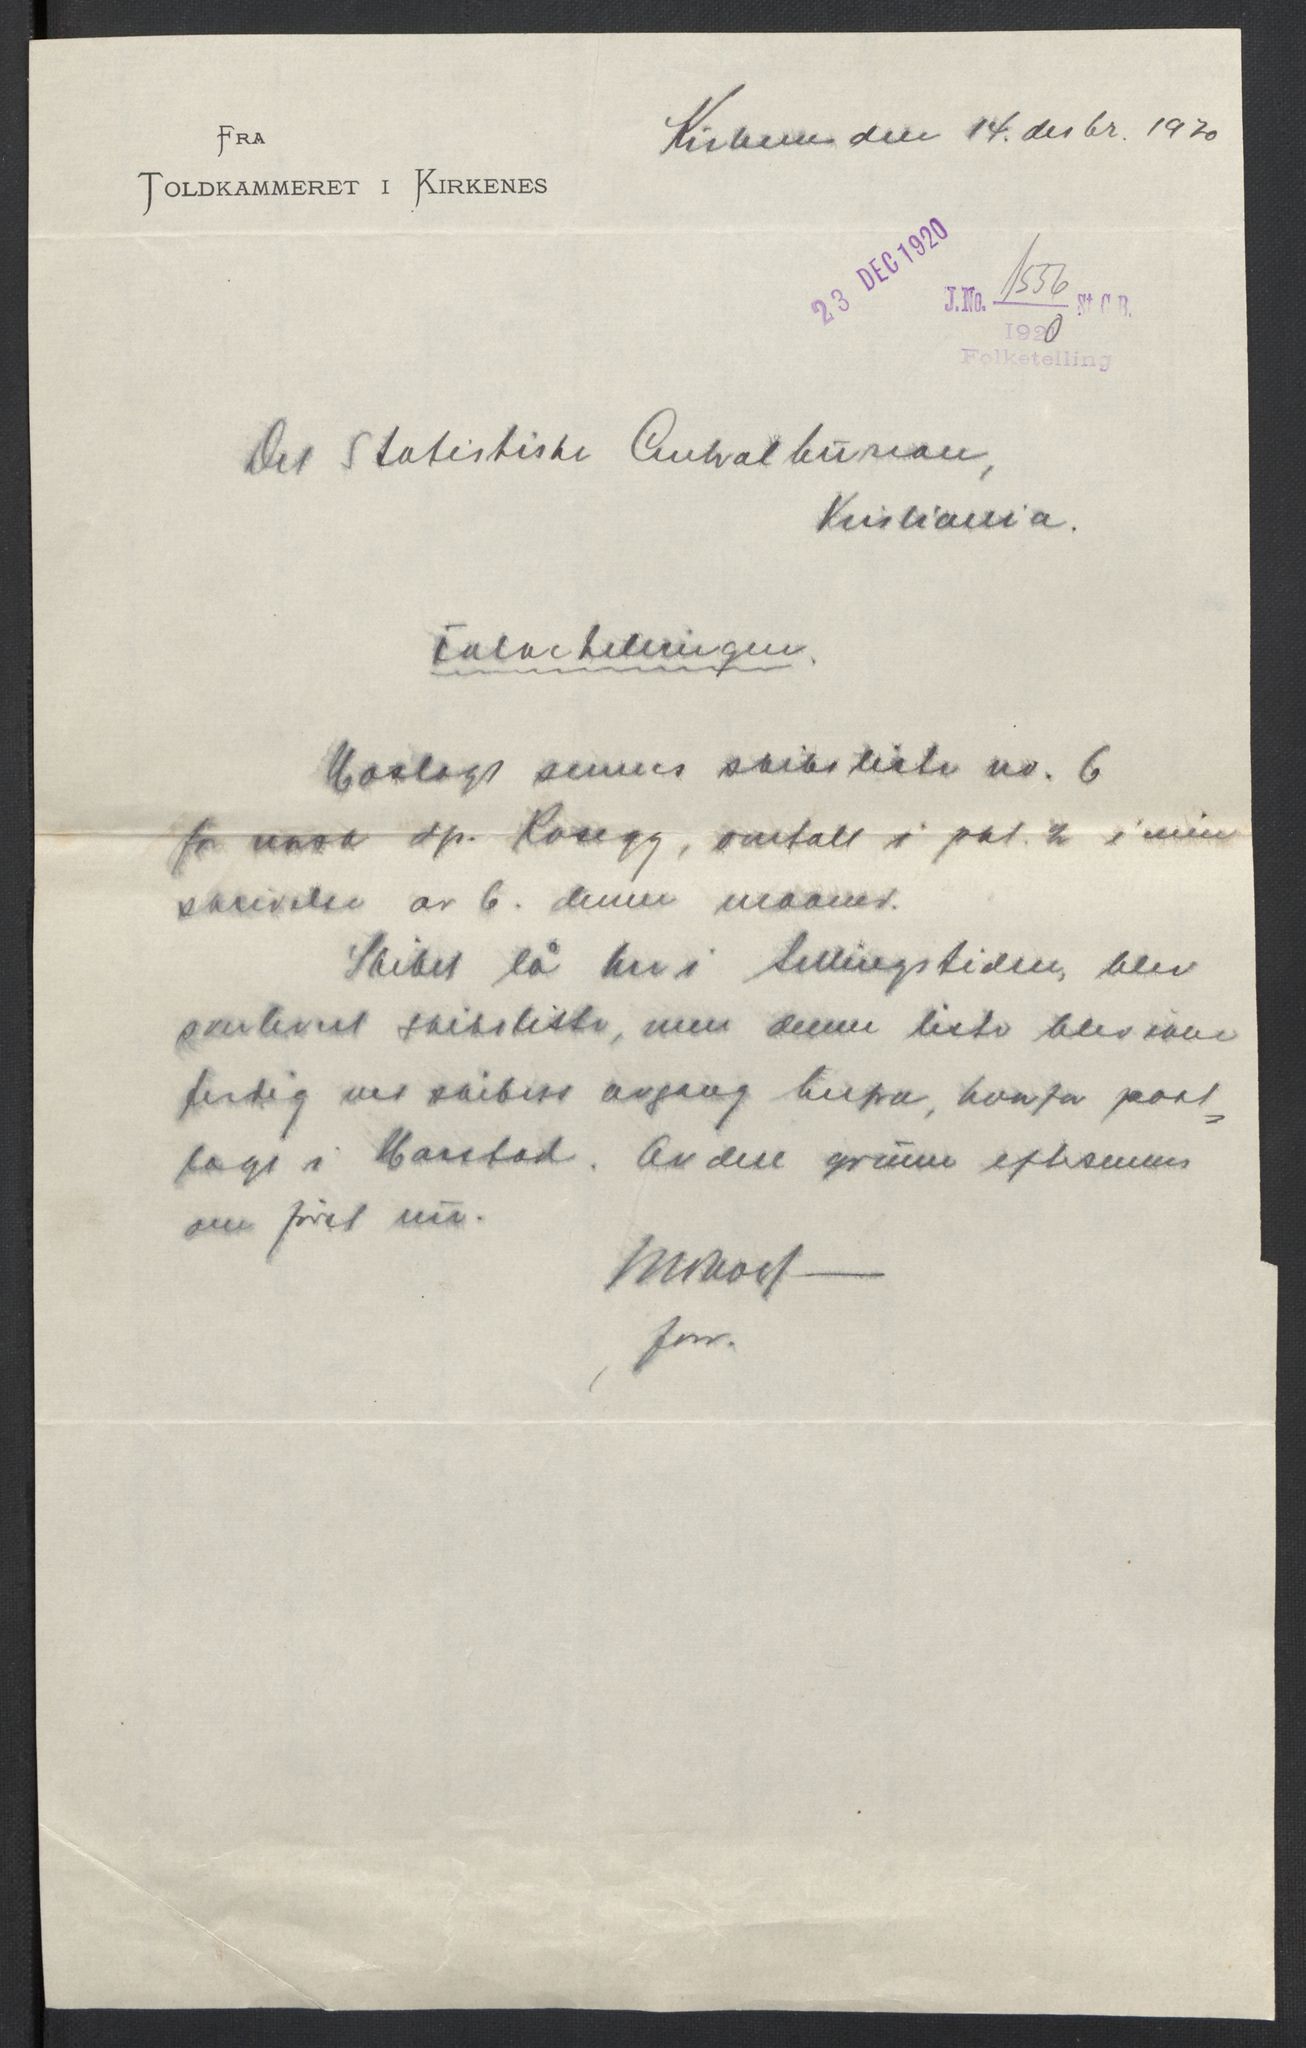 FRA
TOLDKAMMERET I KIRKENES
Kirkenes den 14. desbr. 1920
23 DEC 1920
J.No. 1556 St. C. B.
1920
Folketelling
Det Statistiske Centralbureau,
Kristiania.
Folketellingen.
Vedlagt sendes skibsliste no. 6
for norsk dp. Rosegg, omtalt i pkt. 2 i min
skrivelse av 6. denne maaned.
Skibet lå her i tellingstiden, blev
overlevert skibsliste, men denne liste blev ikke
ferdig ved skibets avgang herfra, hvorfor post-
lagt i Harstad. Av den grunn eftersendes
den først nu.